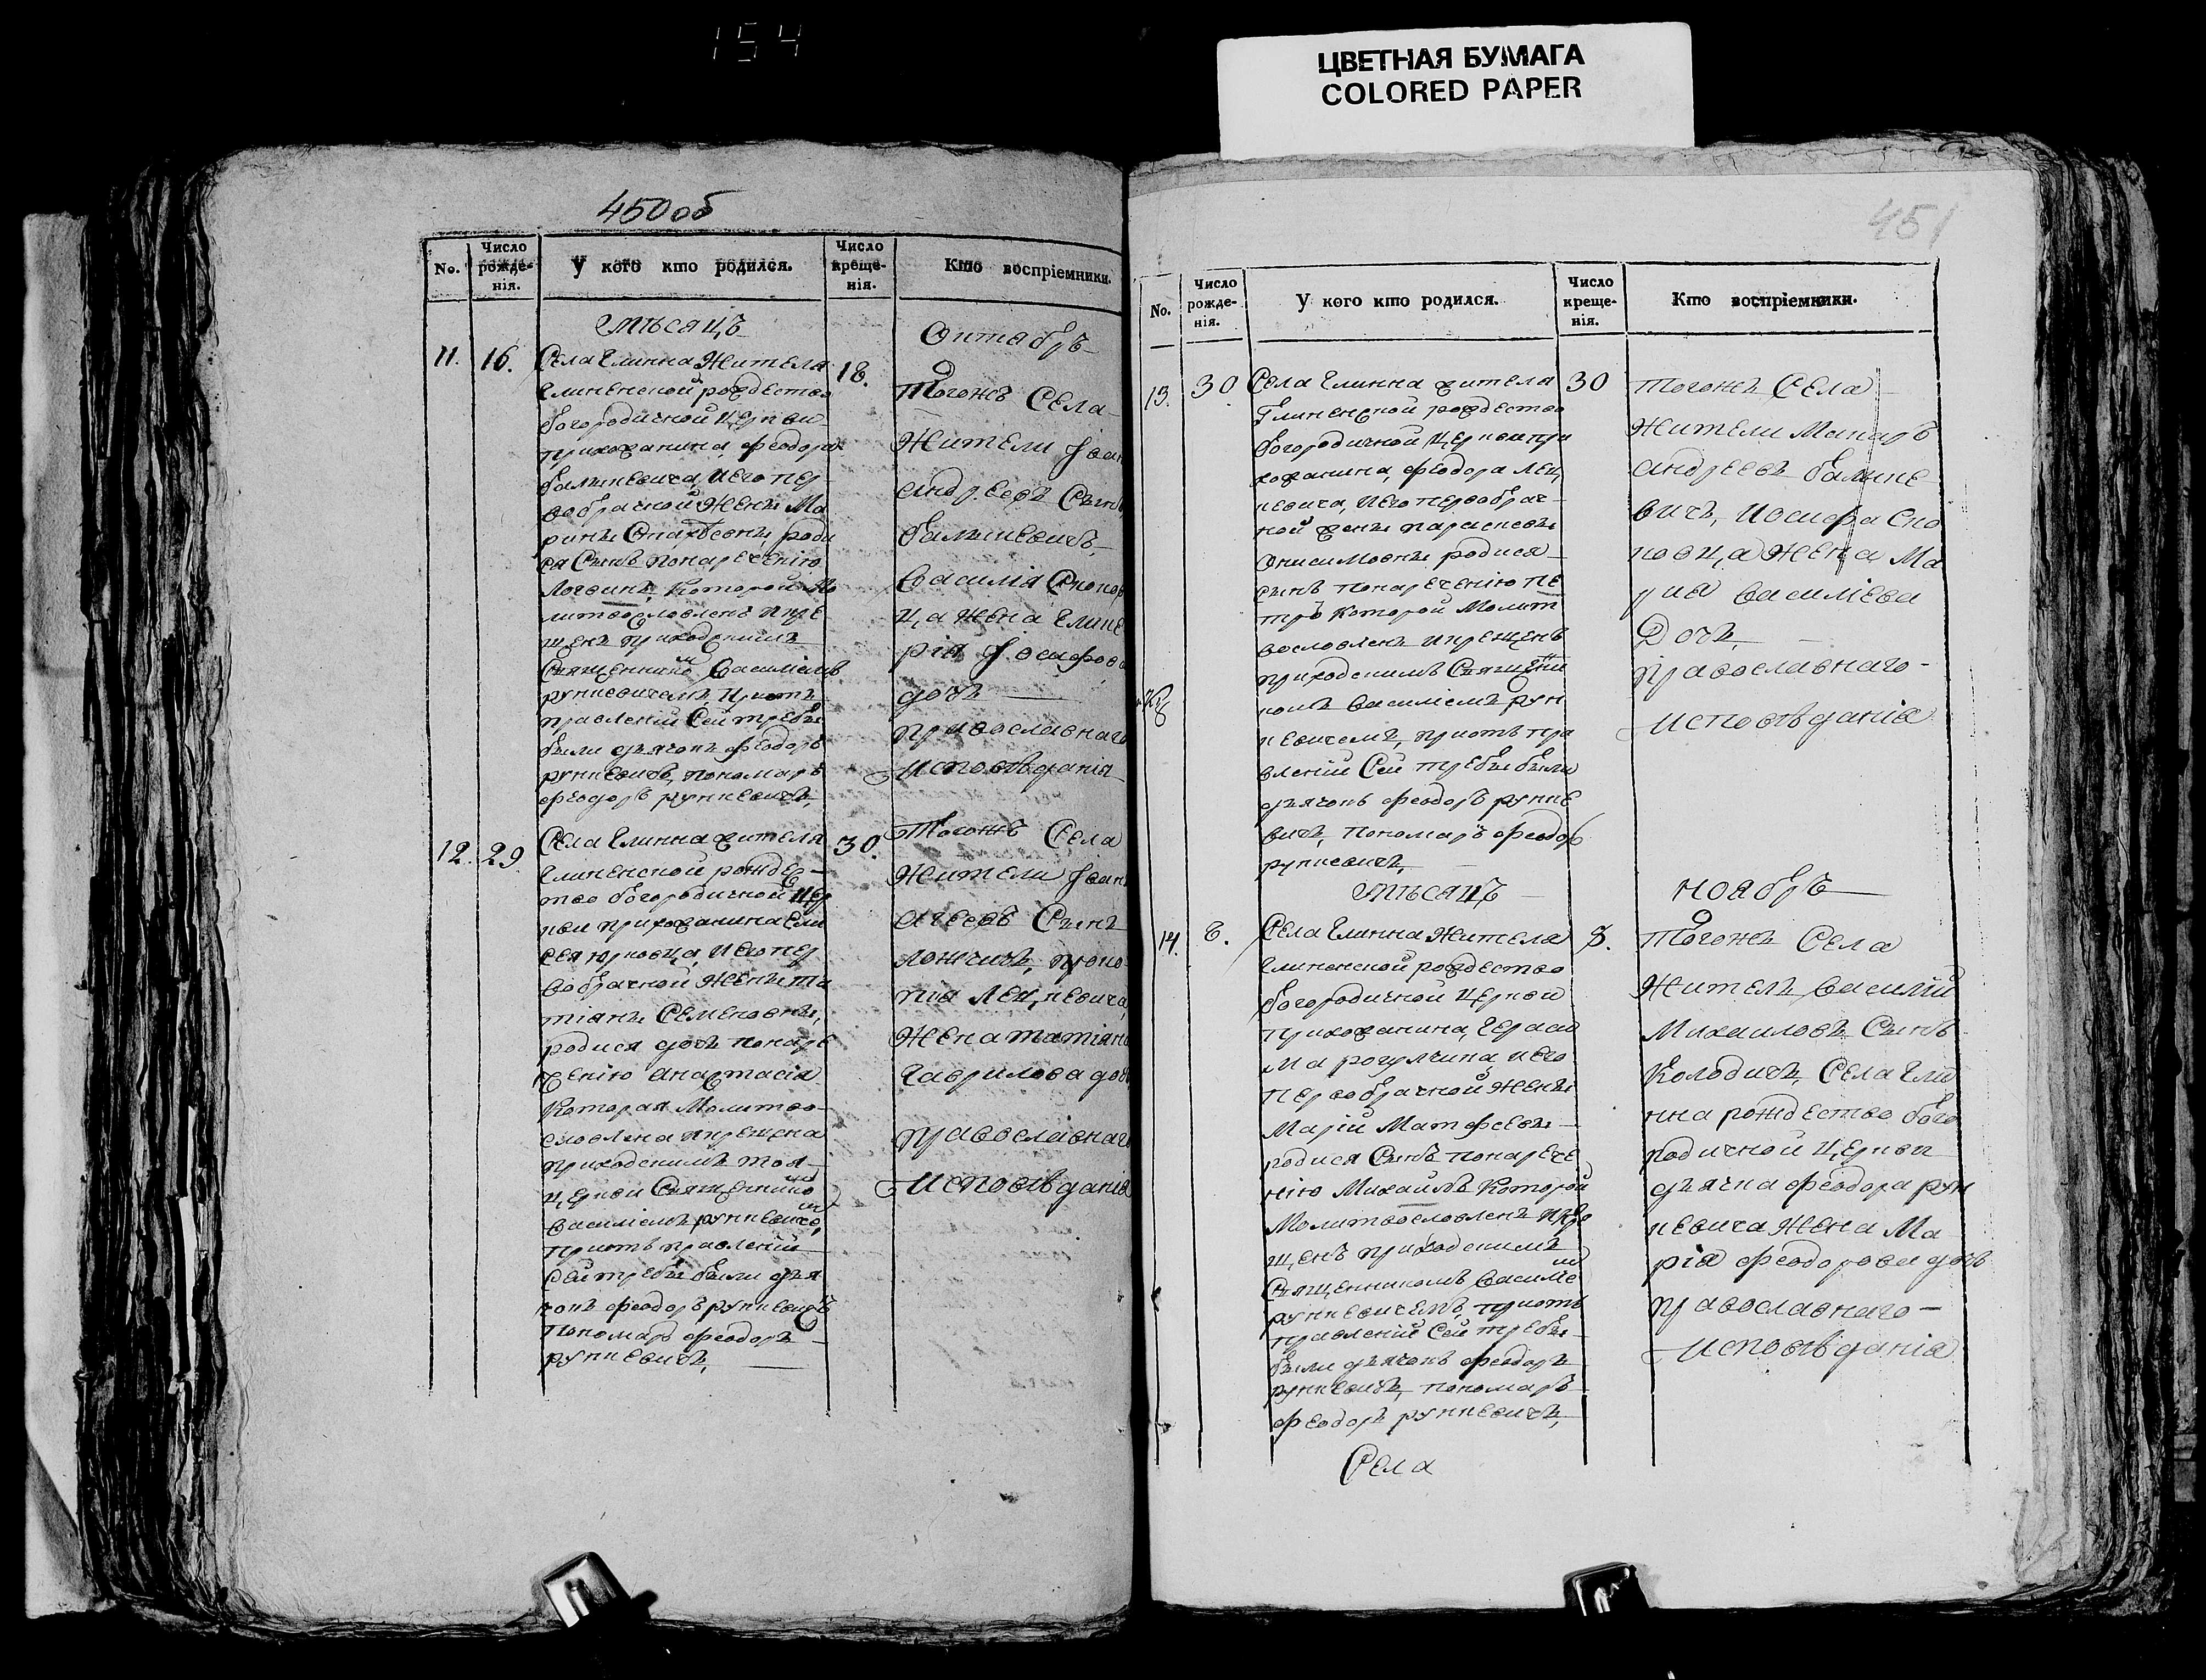 154
ЦВЕТНАЯ БУМАГА
COLORED PAPER
450 об
No.
Число рожде-нія.
У кого кто родился.
Число креще-нія.
Кто воспріемники.
мѣсяцъ
Октабръ
11.
16.
Села Глинна Жителя
Глиненской рождество
богородичной Церкви
прихожанина, Феодора
балыкевича, иего пер
вобрачной Женѣ Ма
ринѣ роди
ся Сынъ понаречению
Логвинъ Которой Мо
литвословленъ икре
щенъ приходскимъ
Священником Василіемъ
рункевичемъ, приот
правленіи Сей требы
были дьячокъ Феодоръ
рункевичъ, пономаръ
Феодоръ рункевичъ,
18.
Тогожъ Села
Жители Іоан
Андреевъ Сынъ
балыкевичъ
Василія
ца жена Глике
рія Іосифова
дочъ
православнаго
исповѣданія
12.
29
Села Глинна жителя
Глиненской рожде
тво богородичной Цер
кви прихожанина Ели
сея юрковца, иего пер
вобрачной Женѣ та
тіянѣ Семеновнѣ,
родися дочъ понаре
ченію анастасія
Которая Молитво
словлена икрещена
приходскимъ тоя
церкви Священнико
Василіемъ рункевиче,
приотъправленіи
сей требы были дья
чокъ Феодоръ рункевичъ
Пономаръ Феодоръ
рункевичъ,
30.
Тогожъ Села
Жители Іоан
Сынъ
проко
пія Лец,кевича,
Жена татіяна
Гаврилова доч
православнаго
исповѣданія
451
No.
Число рожде-нія.
У кого кто родился.
Число креще-нія.
Кто воспріемники.
13.
30
Села Глинна жителя
Глиненской рождество
богородичной Церкви при
хожанина, Феодора Лец,
кевича, иего первобрач
ной женѣ параскевѣ
Онисимовнѣ родися
Сынъ понареченію пе
тръ Которой Молит
вословленъ икрещенъ
приходскимъ Священи
комъ Василіемъ рун
кевичемъ, приотъ пра
вленіи Сей требы были
дьячокъ Феодоръ рунке
вичъ, пономаръ Феодоръ
рункевичъ,
30
тогожъ Села
Жители Макаръ
андреевъ балыке
вичъ, иосифа Ско
повца Жена Ма
рия Василіева
Дочъ,
православнаго
исповѣданія
мѣсяцъ
ноябръ
14.
8.
Села Глинна Жителя
Глиненской рождество
богородичной Церкви
прихожанина, Гераси
ма иего
первобрачной Женѣ
Маріи Матфеевѣ
родися Сынъ понарече
нію Михаилъ Которой
Молитвословленъ икре
щенъ приходскимъ
Священникомъ Василіе
рункевичемъ, приотъ
правленіи Сей требы
были дьячокъ Феодоръ
рункевичъ, пономаръ
Феодоръ рункевичъ,
8.
Тогожъ Села
Житель Василий
Михаиловъ Сынъ
Колодичъ, Села Гли
нна рождество бого
родичной Церкви
дьячка Феодора рун
кевича Жена Ма
рія Феодорова дочъ
православнаго
исповѣданія
Села